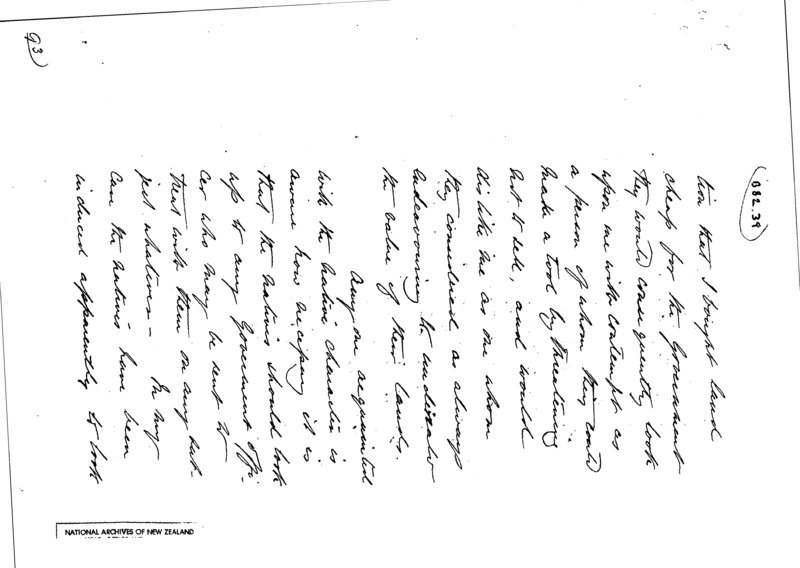 (93)
(882.39)
tion that I bought land
cheap for the Government
they would consequently look
upon me with contempt as
a person of whom they could
make a tool by threatening
but to sell, and would
dislike me as one whom
they considered as always
endeavouring to undervalue
the value of their lands.
Any one acquainted
with the native character is
aware how necessary it is
that the natives should look
up to any Government offi-
cer who may be sent to
treat with them on any sub-
ject whatever — In my
case the natives have been
induced apparently to look
NATIONAL ARCHIVES OF NEW ZEALAND